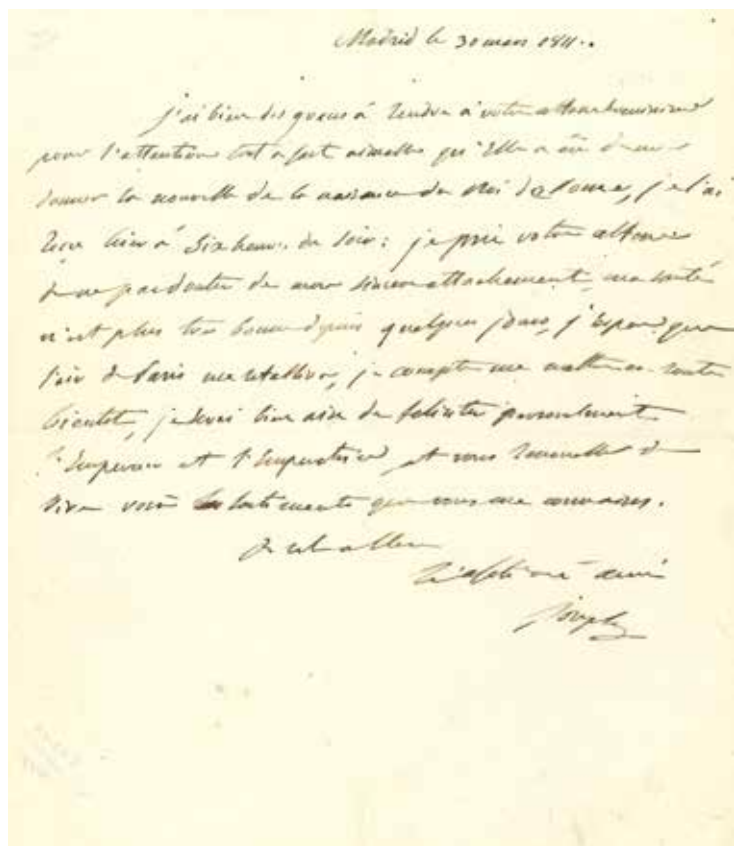 Madrid le 30 mars 1811..
j'ai bien des graces à rendre à votre altesse
pour l'attention tout a fait aimable qu'Elle a eue de me
donner la nouvelle de la naissance du Roi de Rome, je l'ai
reçue hier à Six heures du soir: je prie votre altesse
de ne pas douter de mon sincere attachement, ma santé
n'est plus tres bonne depuis quelques jours, j'espere que
l'air de Paris me retablira, je compte me mettre en route
bientot, je serai bien aise de feliciter personnellement
l'Empereur et l'Imperatrice et vous renouveller de
vive voix les sentiments que vous me connaissez.
De votre altesse
L'affectionné ami
Joseph